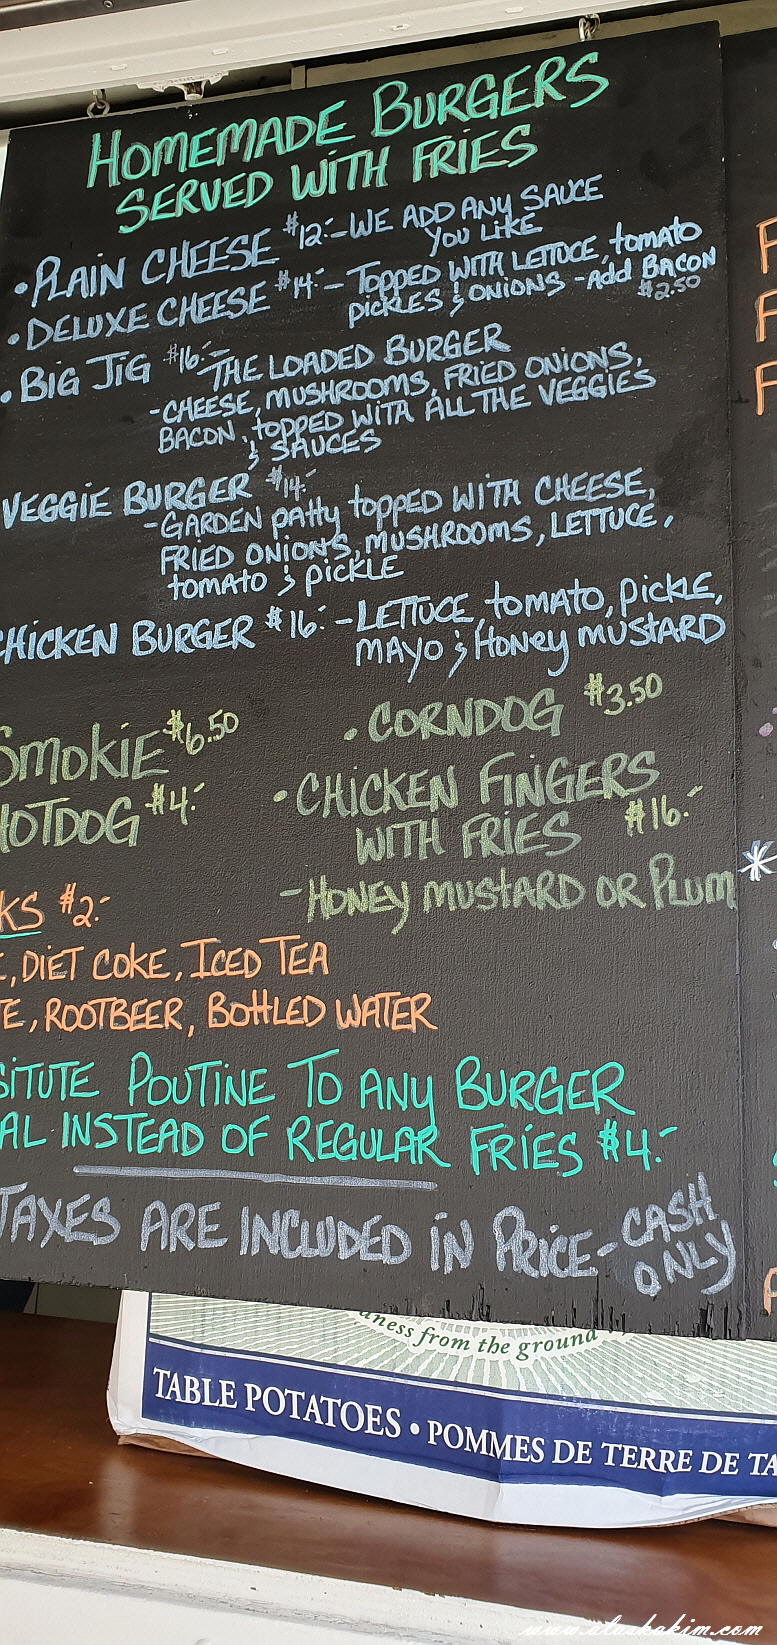 HOMEMADE BURGERS
SERVED WITH FRIES
• PLAIN CHEESE $12.- – WE ADD ANY SAUCE
YOU LIKE
• DELUXE CHEESE $14.- – TOPPED WITH LETTUCE, tomato
PICKLES & ONIONS - Add BACON
$2.50
• BIG JIG $16.- – THE LOADED BURGER
- CHEESE, MUSHROOMS, FRIED ONIONS,
BACON, topped WITH ALL THE VEGGIES
& SAUCES
VEGGIE BURGER $14.-
- GARDEN patty topped WITH CHEESE,
FRIED ONIONS, MUSHROOMS, LETTUCE,
tomato & PICKLE
CHICKEN BURGER $16.- – LETTUCE, tomato, PICKLE,
MAYO & HONEY MUSTARD
SMOKIE $6.50
HOTDOG $4.-
• CORNDOG $3.50
• CHICKEN FINGERS
WITH FRIES $16.-
- HONEY MUSTARD OR PLUM
KS $2.-
E, DIET COKE, ICED TEA
TE, ROOTBEER, BOttLED WATER
SITUTE POUTINE TO ANY BURGER
AL INSTEAD OF REGULAR FRIES $4.-
TAXES ARE INCLUDED IN PRICE - CASH
ONLY
dness from the ground
TABLE POTATOES • POMMES DE TERRE DE TA
www.alaskakim.com